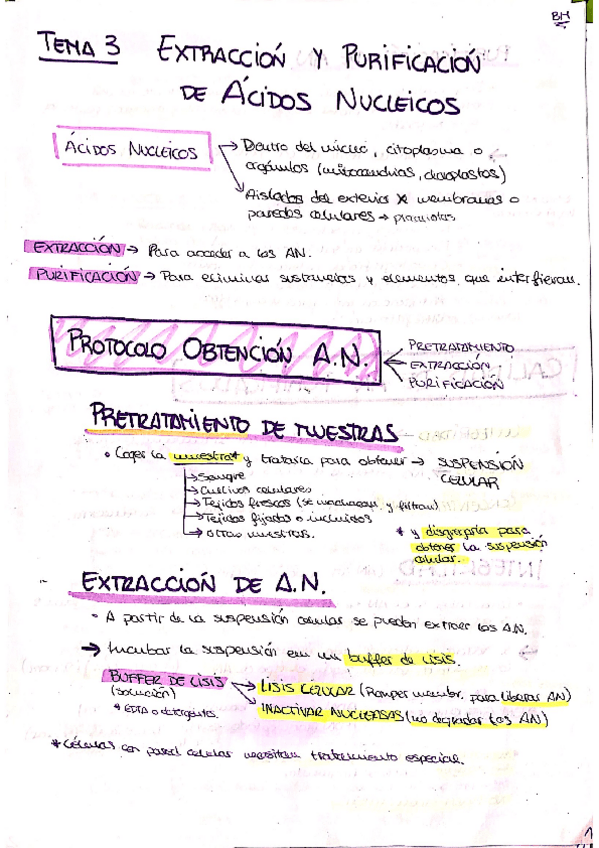 BM
TEMA 3 EXTRACCIÓN Y PURIFICACIÓN
DE ÁCIDOS NUCLEICOS
ÁCIDOS NUCLEICOS → Dentro del núcleo, citoplasma o
orgánulos (mitocondrias, cloroplastos)
Aislados del exterior x membranas o
paredes celulares →
EXTRACCIÓN → Para acceder a los AN.
PURIFICACIÓN → Para eliminar sustancias y elementos que interfieran.
PROTOCOLO OBTENCIÓN A.N.
PRETRATAMIENTO
EXTRACCIÓN
PURIFICACIÓN
PRETRATAMIENTO DE MUESTRAS
• Coger la muestra* y tratarla para obtener → SUSPENSIÓN
CELULAR
→ Sangre
→ Cultivos celulares
→ Tejidos frescos (se machacan y filtran)
→ Tejidos fijados o incluidos
→ otras muestras.
* y disgregarla para
obtener la suspensión
celular.
EXTRACCIÓN DE A.N.
• A partir de la suspensión celular se pueden extraer los AN.
→ Incubar la suspensión con un buffer de lisis.
BUFFER DE LISIS → LISIS CELULAR (Romper membr. para liberar AN)
(solución) → INACTIVAR NUCLEASAS (no degradar los AN)
* EDTA o detergente.
* Células con pared celular necesitan tratamiento especial.
1